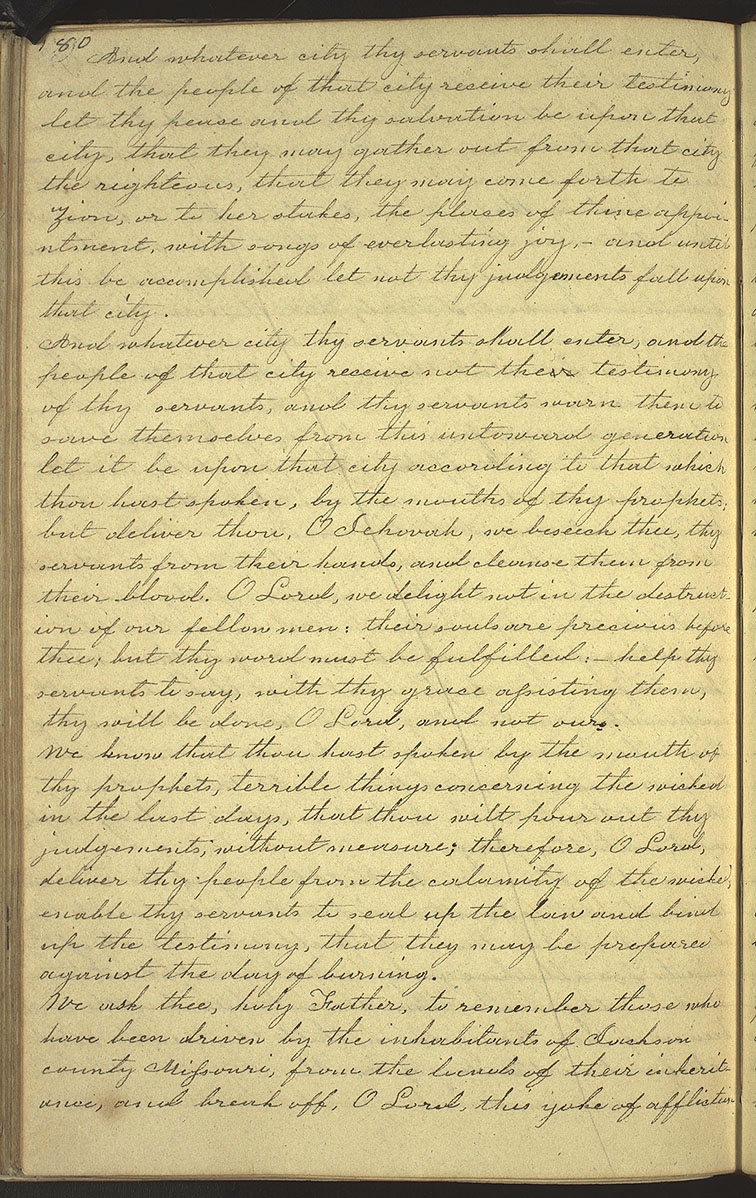 180
And whatever city thy servants shall enter,
and the people of that city receive their testimony
let thy peace and thy salvation be upon that
city, that they may gather out from that city
the righteous, that they may come forth to
Zion, or to her stakes, the plases of thine appoi-
ntment, with songs of everlasting joy,- and until
this be accomplished let not thy judgements fall upon
that city.
And whatever city thy servants shall enter, and the
people of that city receive not their testimony
of thy servants, and thy servants warn them to
save themselves from this untoward generation
let it be upon that city according to that which
thou hast spoken, by the mouths of thy prophets;
but deliver thou, O Jehovah, we beseech thee, thy
servants from their hands, and cleanse them from
their blood. O Lord, we delight not in the destruct-
ion of our fellow men: their souls are precious before
thee; but thy word must be fulfilled:- help thy
servants to say, with thy grace assisting them,
thy will be done, O Lord, and not ours.
We know that thou hast spoken by the mouth of
thy prophets, terrible things concerning the wicked
in the last days, that thou wilt pour out thy
judgements, without measure; therefore, O Lord,
deliver thy people from the calamity of the wicked,
enable thy servants to seal up the law and bind
up the testimony, that they may be prepared
against the day of burning.
We ask thee, holy Father, to remember those who
have been driven by the inhabitants of Jackson
county Missouri, from the lands of their inherit-
ance, and break off, O Lord, this yoke of affliction